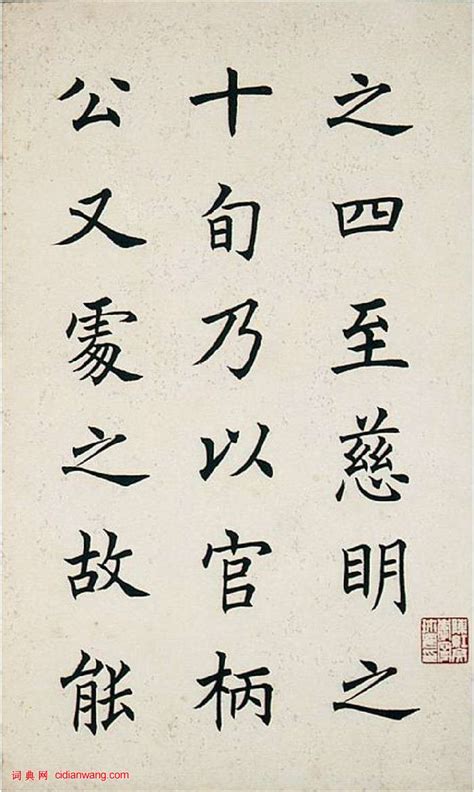 之四至慈眀之
十旬乃以官柄
公又處之故能
词典网 cidianwang.com